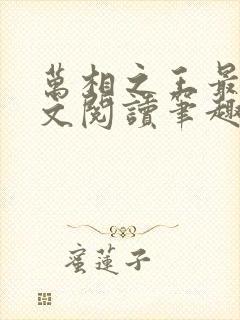 萬相之王最
文閱讀筆趣
蜜蓮子